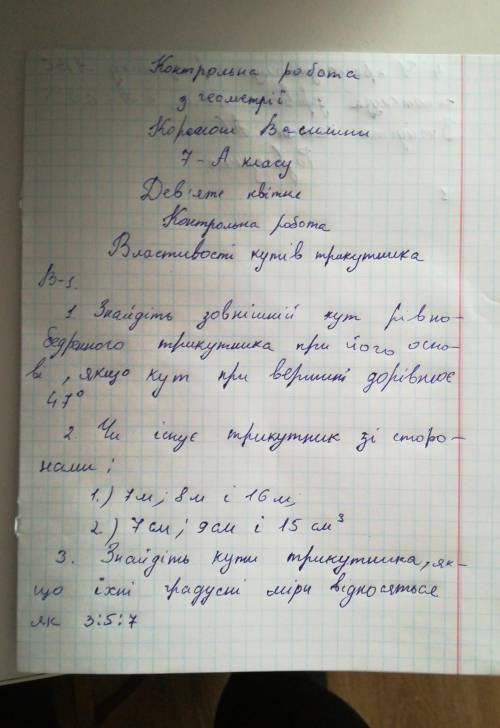 Контрольна робота
з геометрії
Василини
7-А класу
Дев'яте квітня
Контрольна робота
Властивості кутів трикутника
В-1.
1 Знайдіть зовнішній кут рівно-
бедреного трикутника при його осно-
ві, якщо кут при вершині дорівнює
47°
2. Чи існує трикутник зі сторо-
нами:
1.) 7м; 8м і 16м;
2.) 7см; 9см і 15 см³
3. Знайдіть кути трикутника, як-
що їхні градусні міри відносяться
як 3:5:7